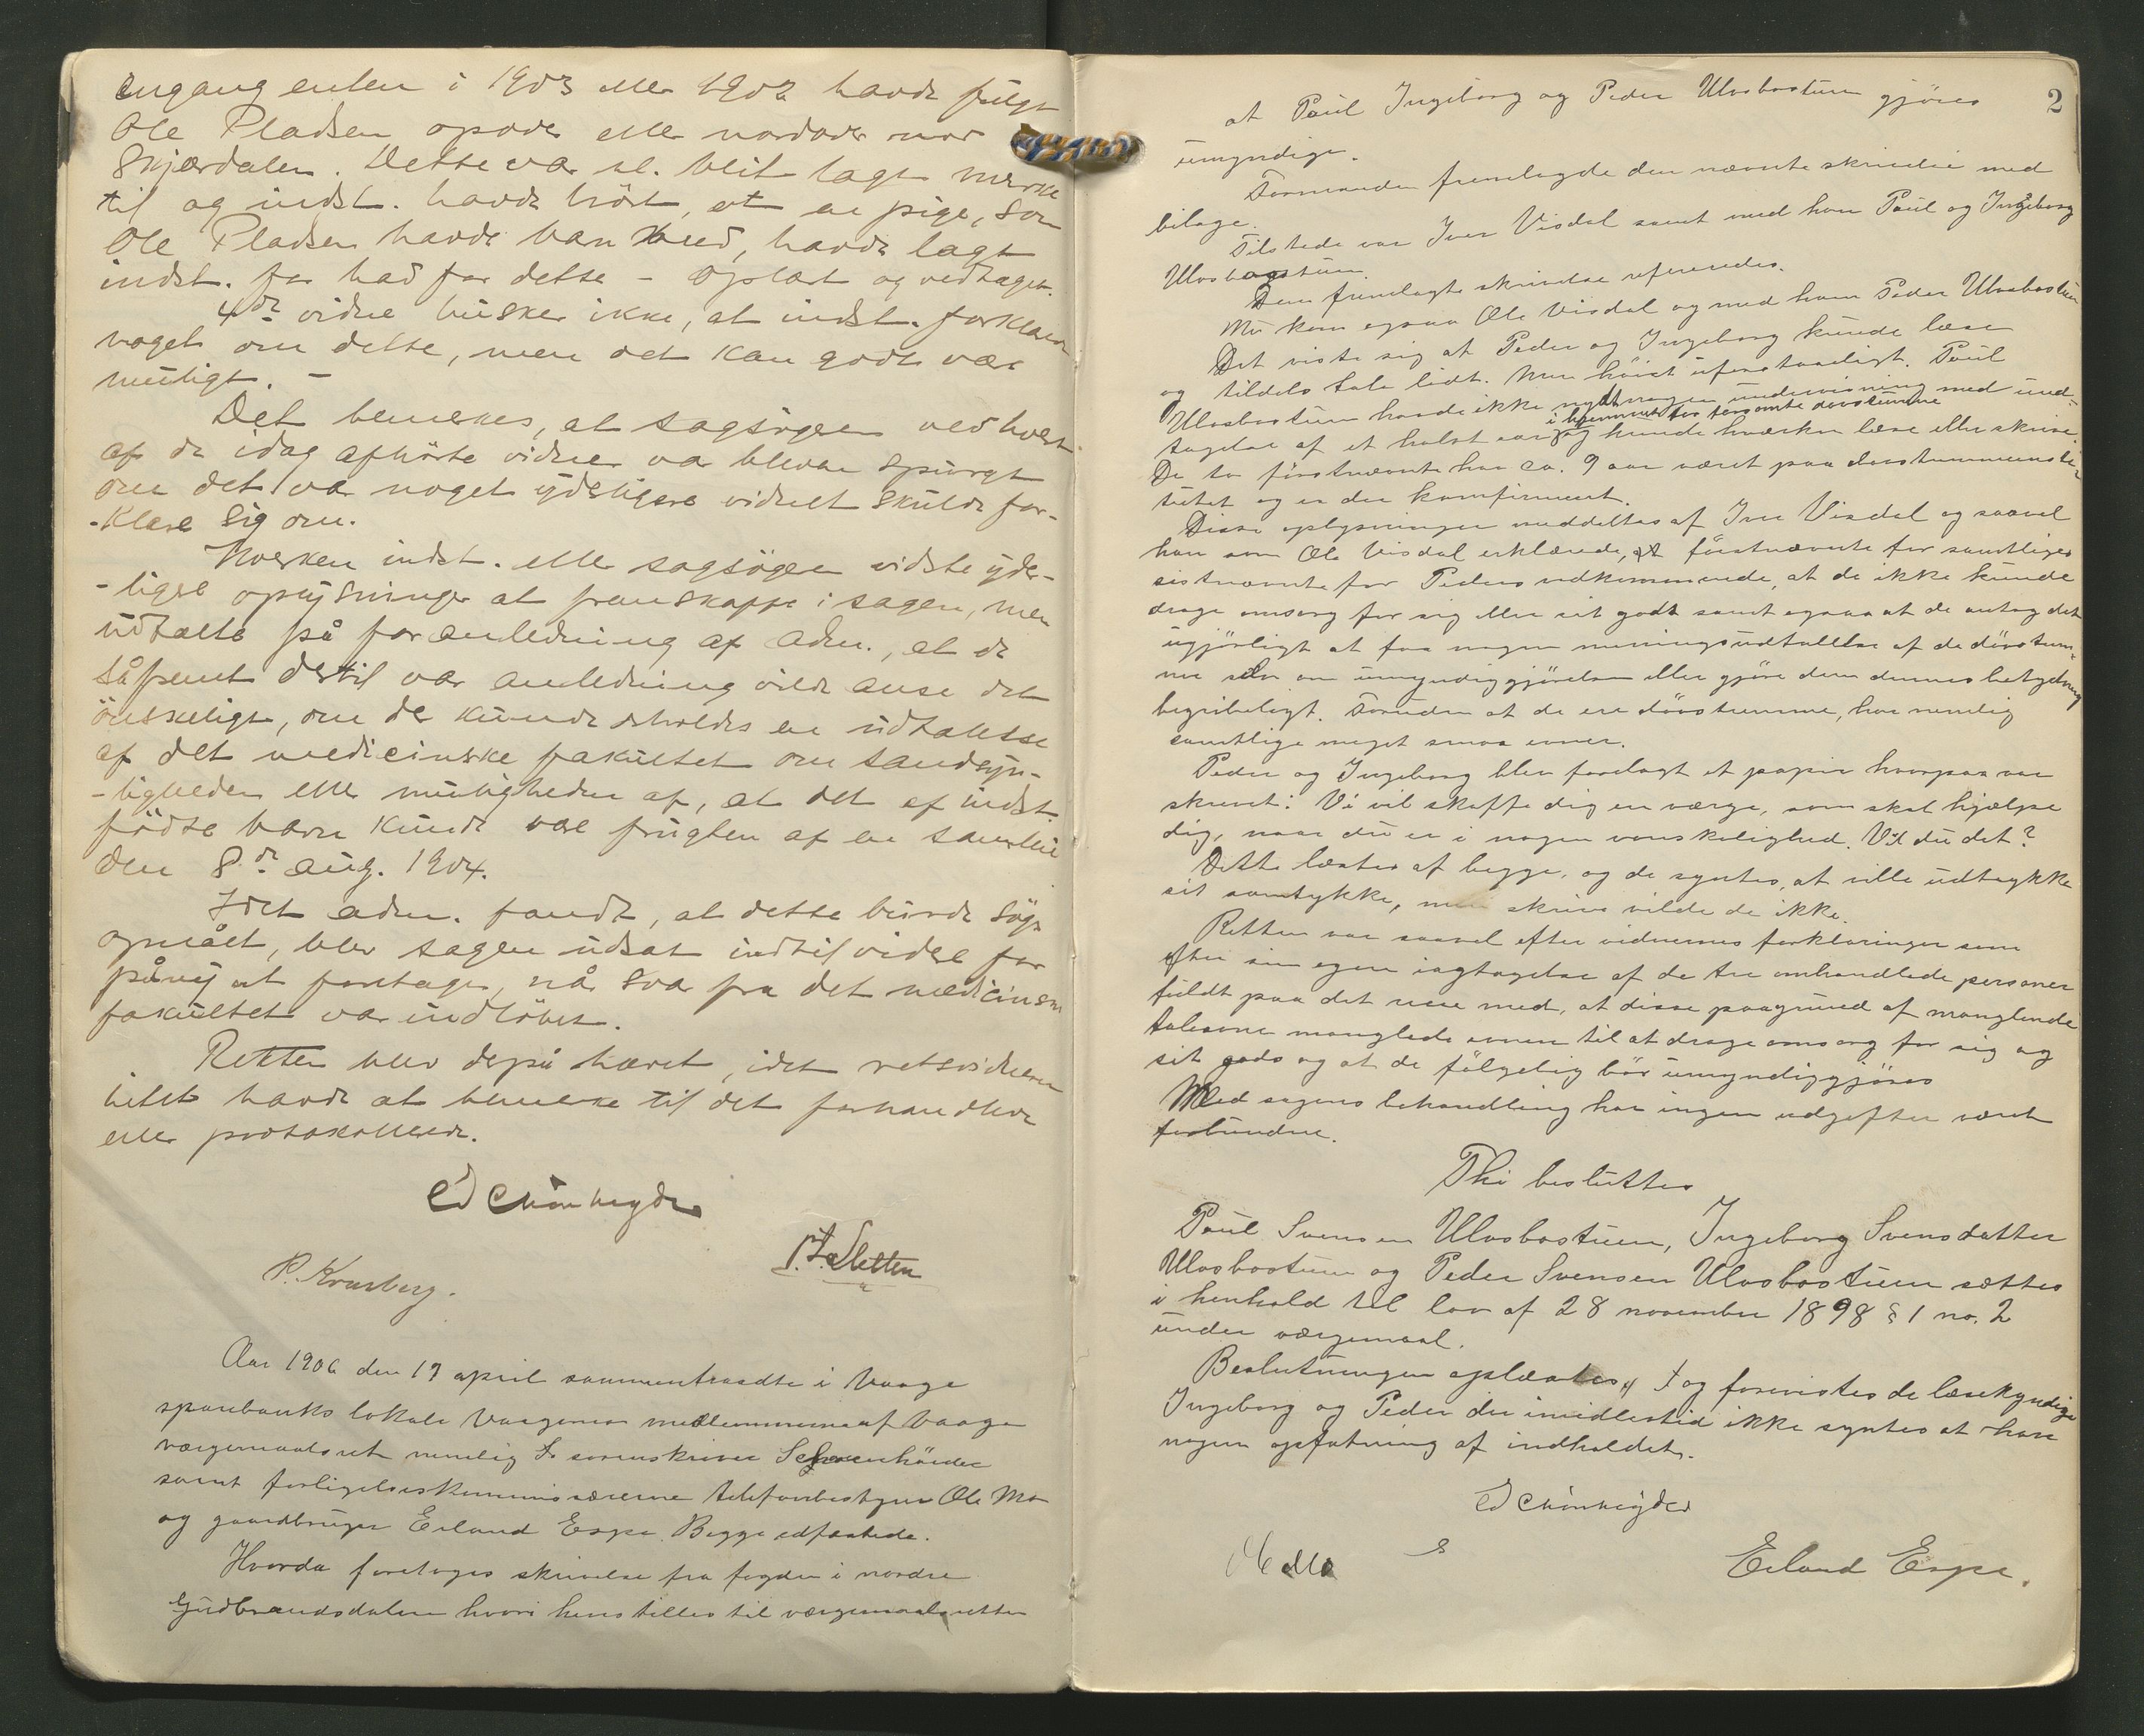 engang enten i 1903 eller 1902 havde fulgt
Ole Pladsen opover eller nordover mod
Skjærdalen. Dette var bl. blit lagt mærke
til og indst. havde hørt, at en pige, som
Ole Pladsen havde barn med, havde lagt
indst. for had for dette - Oplæst og vedtaget.
4de vidne husker ikke, at indst. forklarte
noget om dette, men det kan godt være
muligt. -
Det bemerkes, at sagsøgeren ved hvert
af de idag afhørte vidner var bleven spurgt
om det var noget yderligere vidnet skulde for-
-klare sig om.
Hverken indst. eller sagsøgeren vidste yder-
-ligere oplysninger at fremskaffe i sagen, men
udtalte på foranledning af adm., at de
såfremt dertil var anledning vilde anse det
ønskeligt, om der kunde erholdes en udtalelse
af det medicinske fakultet om sandsyn-
-ligheden eller muligheden af, at det af indst.
fødte barn kunde være frugten af en samleie
den 8de aug. 1904.
Idet adm. fandt, at dette burde søges
opnået, blev sagen udsat indtil videre for
påny at foretages, når svar fra det medicinske
fakultet var indløbet.
Retten blev derpå hævet, idet retsvidnerne
intet havde at bemerke til det forhandlede
eller protokollerede.
Ed Schönheyder
P. Kruсberg.
P. Sletten
Aar 1906 den 19 april sammentraadte i Vaage
sparebanks lokale Vaagemo medlemmerne af Vaage
værgemaalsret nemlig sorenskriver Schönheider
samt forligelseskommissærerne telefonbestyrer Ole Mo
og gaardbruger Erland Espe. Begge edfæstede.
Hvorda foretoges skrivelse fra fogden i nordre
Gudbrandsdalen hvori henstilles til værgemaalsretten
2
at Paul Ingeborg og Peder Ulvsbostuen gjøres
umyndige.
Formanden fremlagde den nævnte skrivelse med
bilage.
Tilstede var Iver Visdal samt med ham Paul og Ingeborg
Ulvsbostuen.
Den fremlagte skrivelse refereredes.
Nu kom ogsaa Ole Visdal og med ham Peder Ulvsbostuen
Det viste sig at Peder og Ingeborg kunde læse
og tildels tale lidt. Men høist uforstaaeligt. Paul
Ulvsbostuen havde ikke nydt nogen undervisning med und-
i hjemmet for døvstumme
tagelse af et halvt aar og kunde hverken læse eller skrive.
De to førstnævnte har ca. 9 aar været paa døvstummeinsti-
tutet og er der konfirmeret.
Disse oplysninger meddeltes af Iver Visdal og saavel
han som Ole Visdal erklærede, førstnævnte for samtliges
sistnævnte for Peders vedkommende, at de ikke kunde
drage omsorg for sig eller sit gods samt ogsaa at de antog det
ugjørligt at faa nogen meningsudtalelse af de døvstum-
me selv om umyndiggjørelsen eller gjøre dem dennes betydning
begribeligt. Foruden at de ere døvstumme, har nemlig
samtlige meget smaa evner.
Peder og Ingeborg blev forelagt et papir hvorpaa var
skrevet: Vi vil skaffe dig en værge, som skal hjælpe
dig, naar du er i nogen vanskelighed. Vil du det?
Dette læstes af begge, og de syntes, at ville udtrykke
sit samtykke, men skrive vilde de ikke.
Retten var saavel efter vidnernes forklaringer som
efter sin egen iagtagelse af de tre omhandlede personer
fuldt paa det rene med, at disse paagrund af manglende
taleevne manglede evnen til at drage omsorg for sig og
sit gods og at de følgelig bør umyndiggjøres
Med sagens behandling har ingen udgifter været
forbundne.
Thi besluttes
Paul Svensen Ulvsbostuen, Ingeborg Svensdatter
Ulvsbostuen og Peder Svensen Ulvsbostuen sættes
i henhold til lov af 28 november 1898 § 1 no. 2
under værgemaal.
Beslutningen oplæstes og forevistes de læsekyndige
Ingeborg og Peder der imidlertid ikke syntes at have
nogen opfatning af indholdet.
Ed Schönheyder
Ole Mo
Erland Espe.